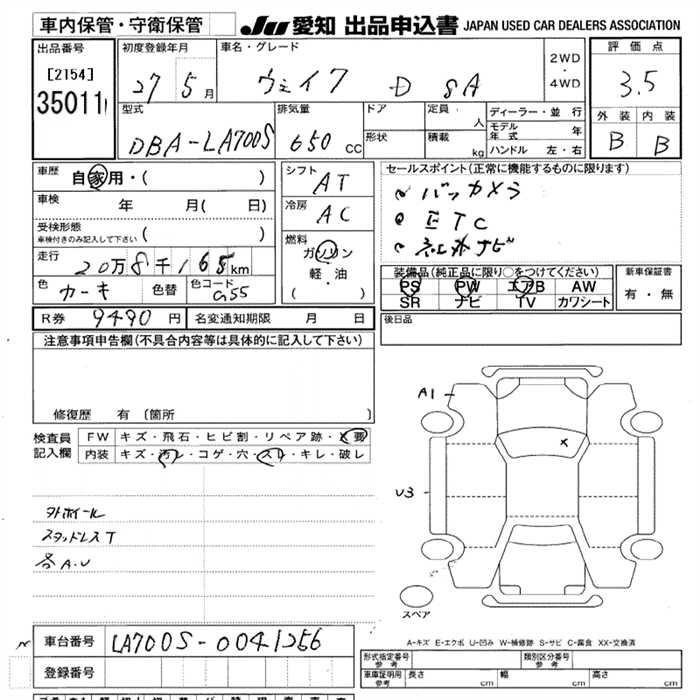 車内保管・守衛保管 JU 愛知 出品申込書 JAPAN USED CAR DEALERS ASSOCIATION
出品番号 初度登録年月 車名・グレード 2WD・4WD 評価点
[2154] 27 5月 ウェイク D SA 3.5
35011
型式 排気量 ドア 定員 人 ディーラー・並行 外装 内装
DBA-LA700S 650 CC 形状 積載 kg モデル年式 年 B B
ハンドル 左・右
車歴 自家用・( )
シフト AT
セールスポイント(正常に機能するものに限ります)
車検 年 月( 日)
冷房 AC
バックカメラ
ETC
受検形態
車検付きのみ記入して下さい ( )
燃料 ガソリン
軽・油
( )
走行 20万8千165km
装備品(純正品に限り○をつけてください) 新車保証書
色 カーキ 色替 色コード G55
PS PW エアB AW 有・無
SR ナビ TV カワシート
R券 9490円 名変通知期限 月 日
後日品
注意事項申告欄(不具合内容等は具体的に記入して下さい)
修復歴 有 〔箇所 〕
検査員記入欄 FW キズ・飛石・ヒビ割・リペア跡・X要
内装 キズ・汚レ・コゲ・穴・スレ・キレ・破レ
A1
X
U3
外ホイール
スタッドレスT
各A.U
スペア
車台番号 LA700S-0041256
A-キズ E-エクボ U-凹み W-補修跡 S-サビ C-腐食 XX-交換済
登録番号
形式指定番号 参考 類別区分番号 参考
車庫証明用 参考 長さ cm 幅 cm 高さ cm